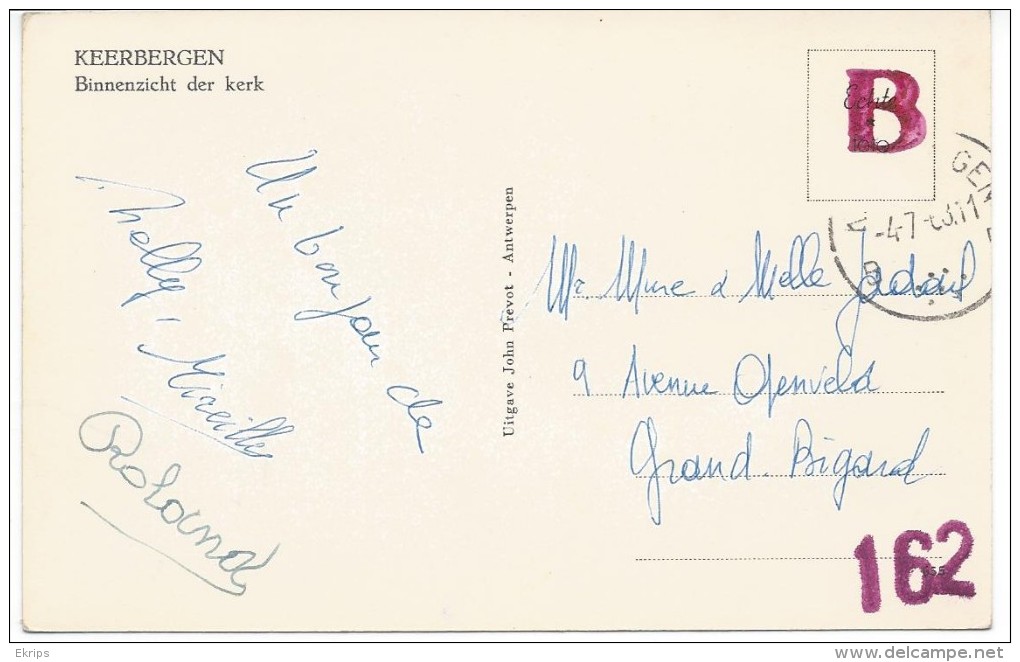 KEERBERGEN
Binnenzicht der kerk
Un bonjour de
Nelly, Mireille
Roland
Uitgave John Prevot - Antwerpen
B
Echte
GEN
-4-7-
Mr Mme & Melle
9 Avenue Openveld
Grand. Bigard
162
Ekrips
www.delcampe.net